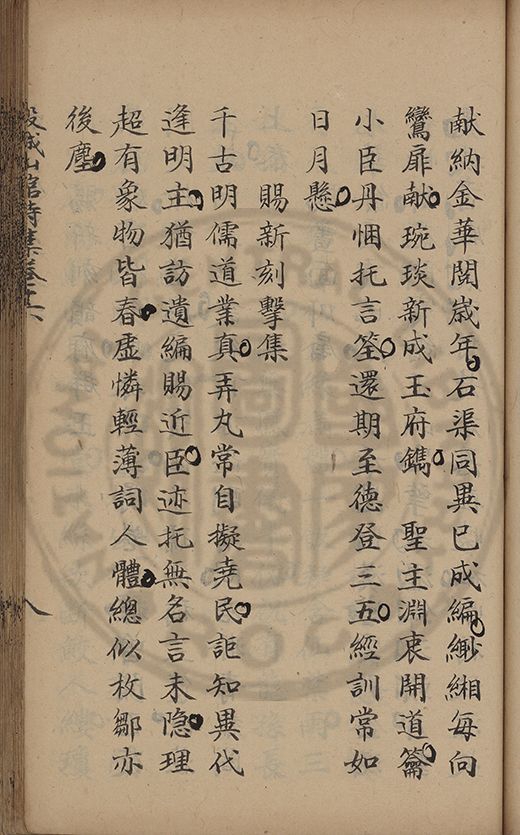 献納金華閱歲年石渠同異已成編緗緗每向
鸞扉献琬琰新成玉府鐫　聖主淵衷開道籥
小臣丹悃托言筌還期至德登三五經訓常如
日月懸
賜新刻擊集
千古明儒道業真弄丸常自擬堯民詎知異代
逢明主猶訪遺編賜近臣迹托無名言未隐理
超有象物皆春虛憐輕薄詞人體總似枚鄒亦
後塵
穀城山館詩集卷之十六
八